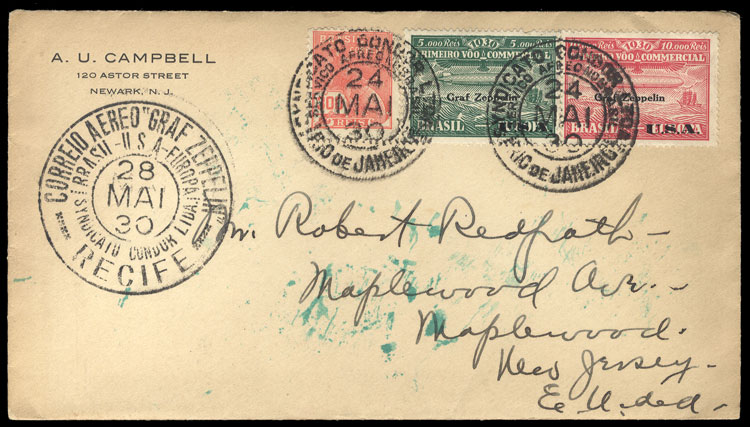 A. U. CAMPBELL
120 ASTOR STREET
NEWARK, N. J.
CORREIO AEREO "GRAF ZEPPELIN"
BRASIL-U.S.A-EUROPA
28
MAI
30
SYNDICATO CONDOR LTDA.
RECIFE
SYNDICATO CONDOR
SERVIÇO AEREO
24
MAI
30
RIO DE JANEIRO
5.000 Reis 1930 5.000 Reis
PRIMEIRO VOO COMMERCIAL
Graf Zeppelin
BRASIL U.S.A.
1930 10.000 Reis
PRIMEIRO VOO COMMERCIAL
Graf Zeppelin
BRASIL U.S.A.
SYNDICATO CONDOR
24
MAI
30
RIO DE JANEIRO
Mr. Robert Redpath
Maplewood Ave.
Maplewood.
New Jersey
E. U. de A.